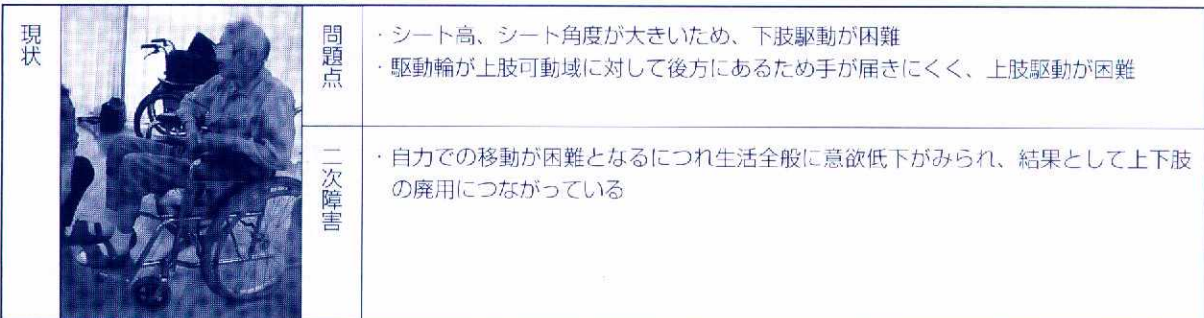 現状
問題点
・シート高、シート角度が大きいため、下肢駆動が困難
・駆動輪が上肢可動域に対して後方にあるため手が届きにくく、上肢駆動が困難
二次障害
・自力での移動が困難となるにつれ生活全般に意欲低下がみられ、結果として上下肢
の廃用につながっている